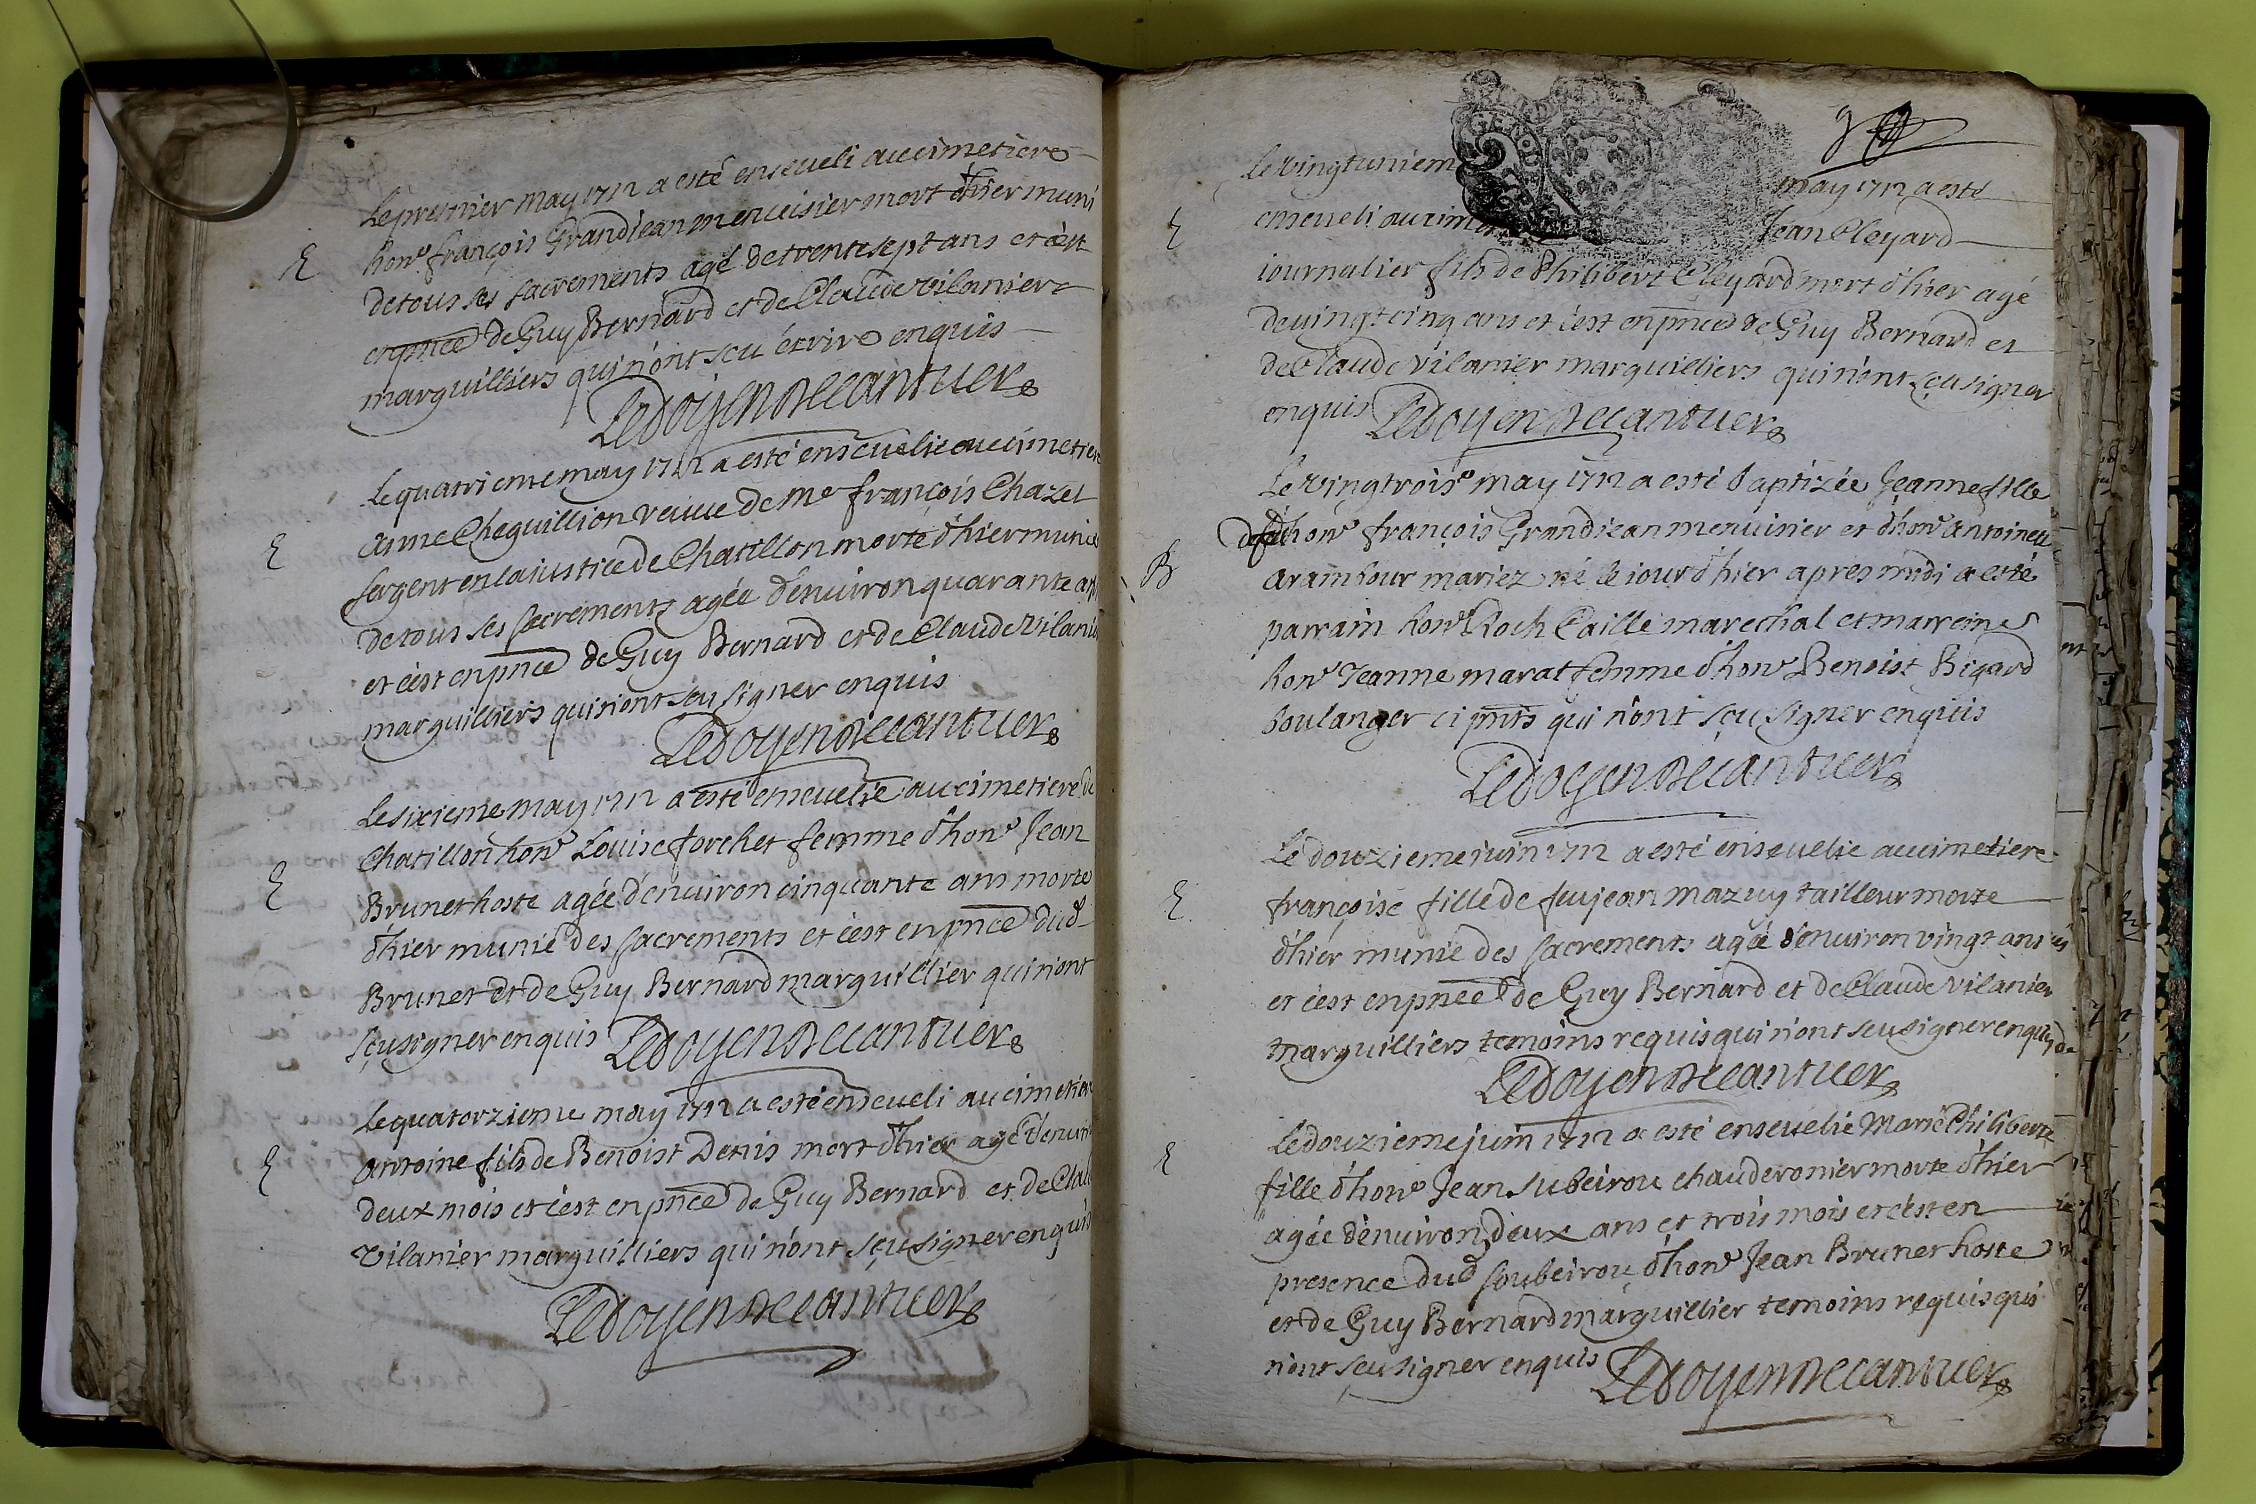 Le premier may 1712 a esté enseveli au cimetiere
E
hon.e françois Grandjean menuisier mort d'hier muni
de tous ses sacrements agé de trente sept ans et c'est
en pnce de Guy Bernard et de Claude vilanier
marguilliers qui n'ont sceu écrire enquis
Ledoyen decantuer
Le quatrieme may 1712 a esté ensevelie au cimetiere
E
anne Cheguillion veuve de Me françois Chazet
sergent en la justice de Chatillon morte d'hier munie
de tous ses sacrements agée d'environ quarante ans
et c'est en pnce de Guy Bernard et de Claude vilanier
marguilliers qui n'ont sceu signer enquis
Ledoyen decantuer
Le sixieme may 1712 a esté ensevelie au cimetiere de
Chatillon hon.e Louise forchet femme d'hon.e Jean
E
Brunet hoste agée d'environ cinquante ans morte
d'hier munie des sacrements et c'est en pnce dud
Brunet et de Guy Bernard marguillier qui n'ont
sceu signer enquis Ledoyen decantuer
Le quatorzieme may 1712 a esté enseveli au cimetiere
E
antoine fils de Benoist Denis mort d'hier agé d'environ
deux mois et c'est en pnce de Guy Bernard et de Claude
vilanier marguilliers qui n'ont sceu signer enquis
Ledoyen decantuer
Le vingtuniem may 1712 a esté
E
enseveli au cimetiere Jean Cleyard
journalier fils de Philibert Cleyard mort d'hier agé
de vingt cinq ans et c'est en pnce de Guy Bernard et
de Claude vilanier marguilliers qui n'ont sceu signer
enquis Ledoyen decantuer
Le vingtrois.e may 1712 a esté baptizée Jeanne fille
de hon.e françois Grandjean menuisier et d'hon.e antoinette
B
arambour mariez né le jour d'hier apres midi a esté
parrain hon.e Roch Caille marechal et marreine
hon.e Jeanne marat femme d'hon.e Benoist Bigard
boulanger ci pnts qui n'ont sceu signer enquis
Ledoyen decantuer
Le douzieme juin 1712 a esté ensevelie au cimetiere
E
françoise fille de feu jean mazuy tailleur morte
d'hier munie des sacrements agée d'environ vingt ans
et c'est en pnce de Guy Bernard et de Claude vilanier
marguilliers temoins requis qui n'ont sceu signer enquis
Ledoyen decantuer
Le douzieme juin 1712 a esté ensevelie Marie Philiberte
E
fille d'hon.e Jean Subeirou chauderonier morte d'hier
agée d'environ deux ans et trois mois et c'est en
presence dud soubeirou d'hon.e Jean Brunet hoste
et de Guy Bernard marguillier temoins requis qui
n'ont sceu signer enquis Ledoyen decantuer